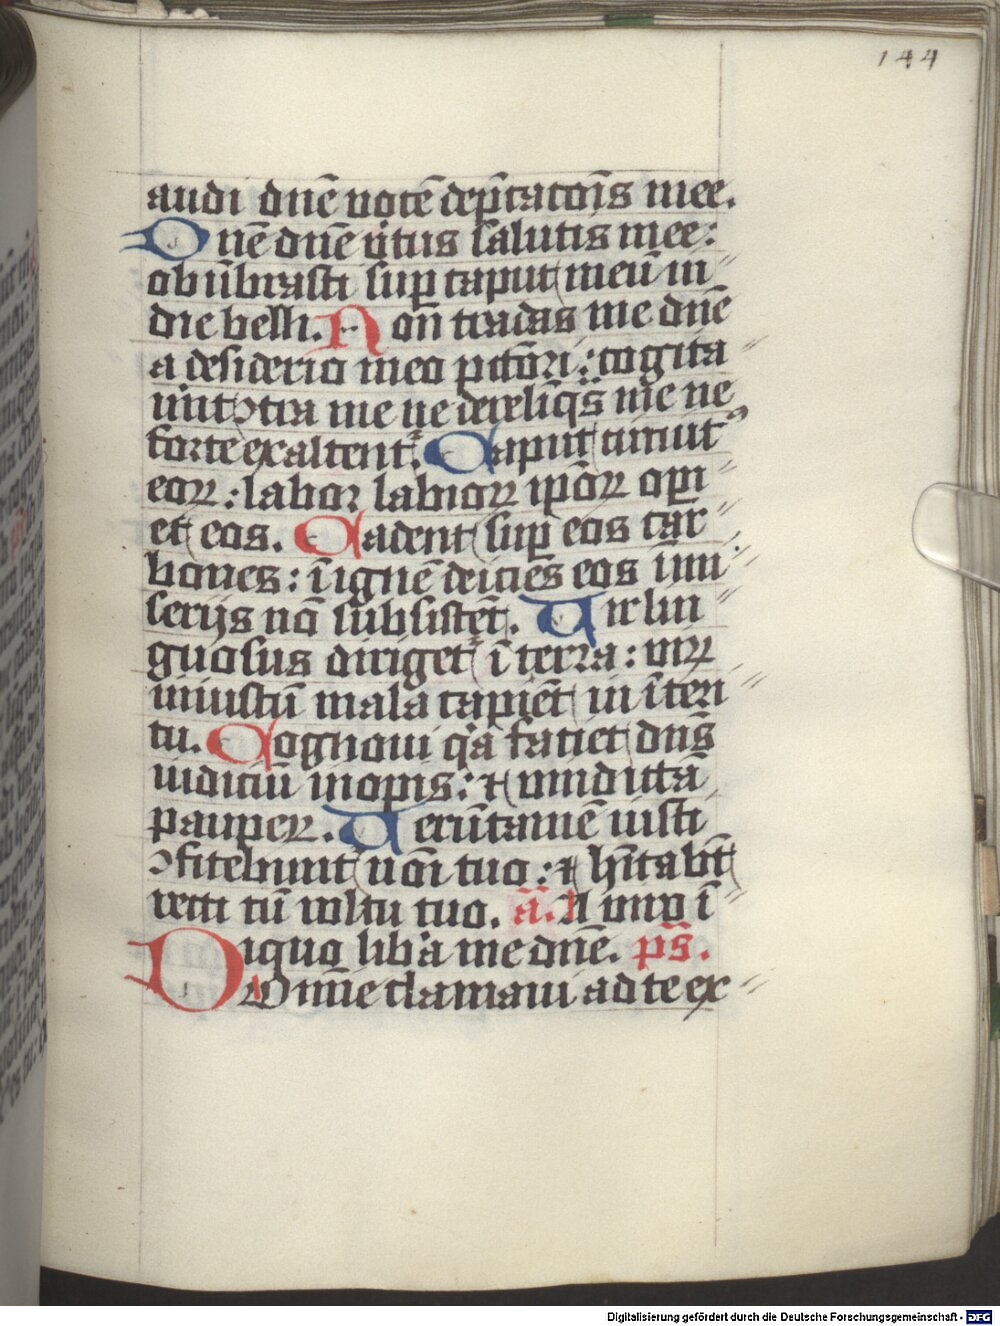 144
audi dnē vocē dep̄cacōis mee.
Dnē dnē v̓tus salutis mee:
obūbrasti sup̄ caput meū in
die belli. Non tradas me dnē
a desiderio meo pctōri: cogita
ūnt ꝯtra me ne derelīqͣs me ne
forte exaltent᷑. Caput circuit᷒
eoꝝ: labor labioꝝ ip̄oꝝ op̄i
et eos. Cadent sup̄ eos car
bones: ī ignē deicies eos ī mi
serijs nō subsistēt. Uir lin
guosus diriget᷑ ī terra: virū
iniustū mala capiēt in īteri
tu. Cognoui qͣa faciet dn̄s
iudiciū inopis: ⁊ vindictā
paupeꝝ. Uerūtamē iusti
ꝯfitebunt᷑ noi̅ tuo: ⁊ hītabūt
recti cū vultu tuo. a̅. A viro ī
iquo lib̓a me dnē. p̄s.
Domīe clamaui ad te ex
Digitalisierung gefördert durch die Deutsche Forschungsgemeinschaft - DFG